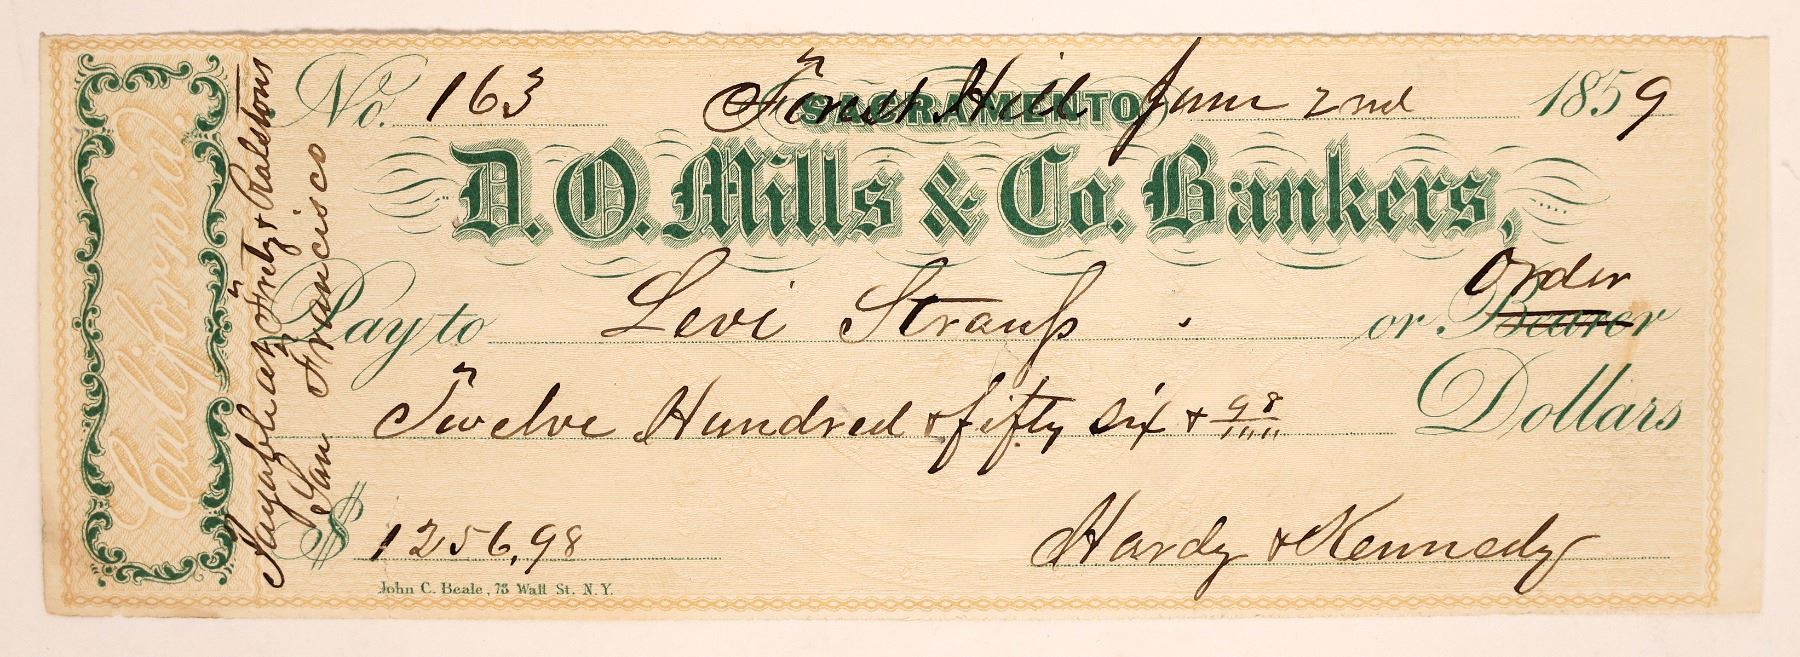 No. 163 Forest Hill June 2nd 1859
SACRAMENTO
D. O. Mills & Co. Bankers,
Pay to Levi Strauſs or Bearer Order
Twelve Hundred & fifty six & 98/100 Dollars
$ 1256,98
Hardy & Kennedy
John C. Beale, 73 Wall St. N.Y.
California
Payable at Fritz & Ralstons
San Francisco